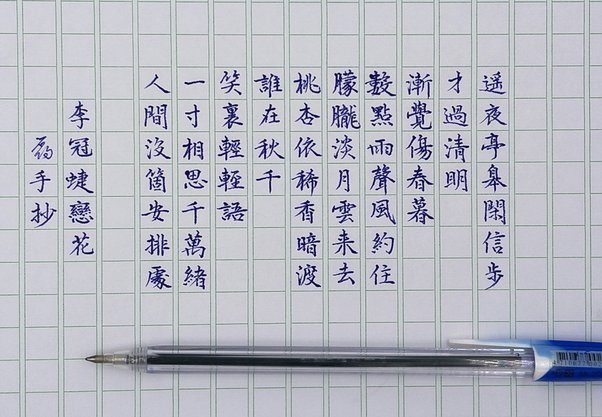 遥夜亭皋閑信步
才過清明
漸覺傷春暮
數點雨聲風約住
朦朧淡月雲来去
桃杏依稀香暗渡
誰在秋千
笑裏輕輕語
一寸相思千萬緒
人間沒箇安排處
李冠蜨戀花
手抄